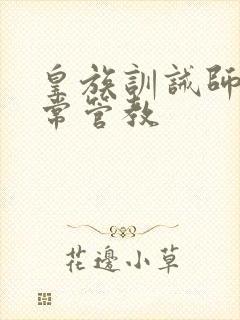 皇族訓誡師
常管教
花邊小草